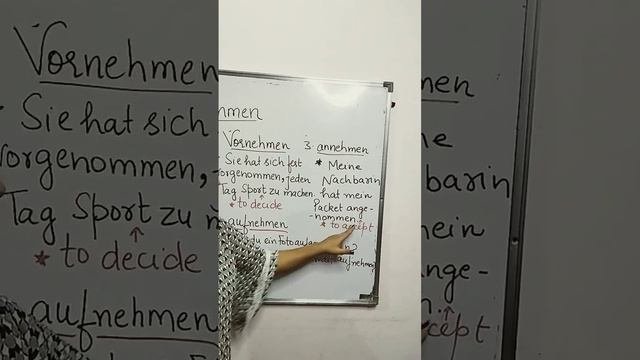 Vornehmen
Sie hat sich
vorgenommen,
Tag Sport zu
* to decide
aufnehmen
hmen
Vornehmen
Sie hat sich fest
vorgenommen, jeden
Tag Sport zu machen.
* to decide
aufnehmen
du ein Foto
3. annehmen
* Meine
Nachbarin
hat mein
Packet ange-
-nommen.
* to accept
aufnehmen
men
ne
barin
mein
nge-
cept